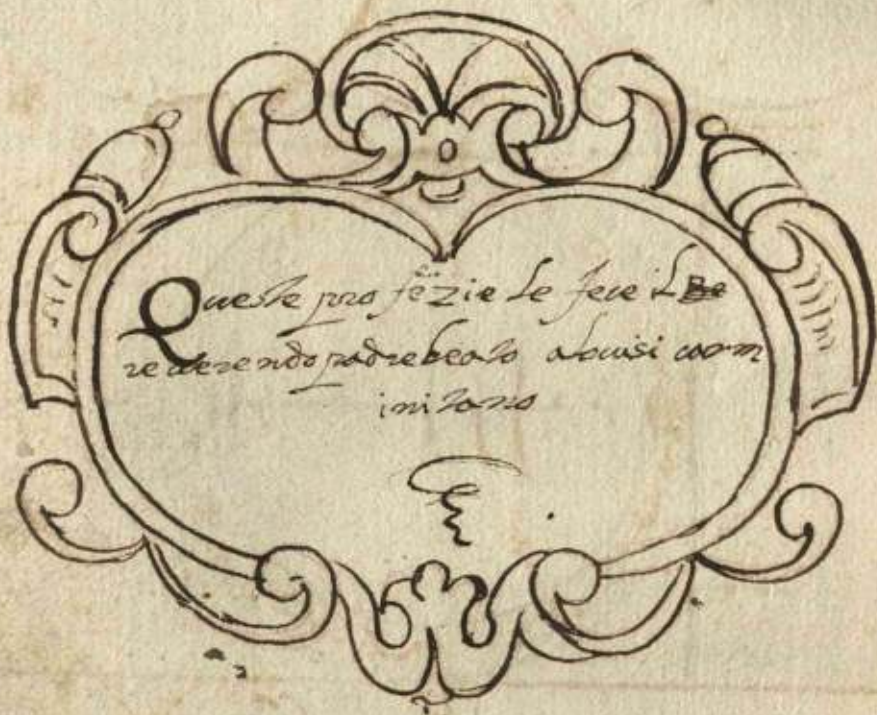 Queste profezie le fece il Be
reverendo padre beato alouisi carm
initano